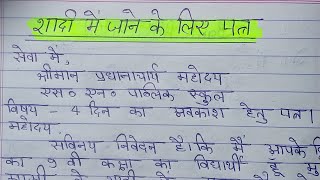 शादी में जाने के लिए पत्र
सेवा में,
श्रीमान प्रधानाचार्य महोदय
एस० एन० पब्लिक स्कूल
विषय - 4 दिन का अवकाश हेतु पत्र।
महोदय
सविनय निवेदन है। कि मैं आपके
का 9 वी कक्षा का विद्यार्थी हूँ